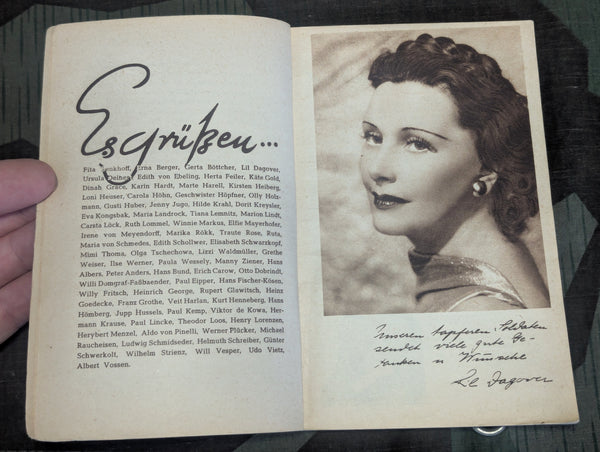 Es grüßen...
Fita Benkhoff, Erna Berger, Gerta Böttcher, Lil Dagover,
Ursula Deinert, Edith von Ebeling, Herta Feiler, Käte Gold,
Dinah Grace, Karin Hardt, Marte Harell, Kirsten Heiberg,
Loni Heuser, Carola Höhn, Geschwister Höpfner, Olly Holz-
mann, Gusti Huber, Jenny Jugo, Hilde Krahl, Dorit Kreysler,
Eva Kongsbak, Maria Landrock, Tiana Lemnitz, Marion Lindt,
Carsta Löck, Ruth Lommel, Winnie Markus, Elfie Mayerhofer,
Irene von Meyendorff, Marika Rökk, Traute Rose, Ruta,
Maria von Schmedes, Edith Schollwer, Elisabeth Schwarzkopf,
Mimi Thoma, Olga Tschechowa, Lizzi Waldmüller, Grethe
Weiser, Ilse Werner, Paula Wessely, Manny Ziener, Hans
Albers, Peter Anders, Hans Bund, Erich Carow, Otto Dobrindt,
Willi Domgraf-Faßbaender, Paul Eipper, Hans Fischer-Kösen,
Willy Fritsch, Heinrich George, Rupert Glawitsch, Heinz
Goedecke, Franz Grothe, Veit Harlan, Kurt Henneberg, Hans
Hömberg, Jupp Hussels, Paul Kemp, Viktor de Kowa, Her-
mann Krause, Paul Lincke, Theodor Loos, Henry Lorenzen,
Herybert Menzel, Aldo von Pinelli, Werner Plücker, Michael
Raucheisen, Ludwig Schmidseder, Helmuth Schreiber, Günter
Schwerkolt, Wilhelm Strienz, Will Vesper, Udo Vietz,
Albert Vossen.
Unseren tapferen Soldaten
sendet viele gute Ge-
danken u Wünsche
Lil Dagover